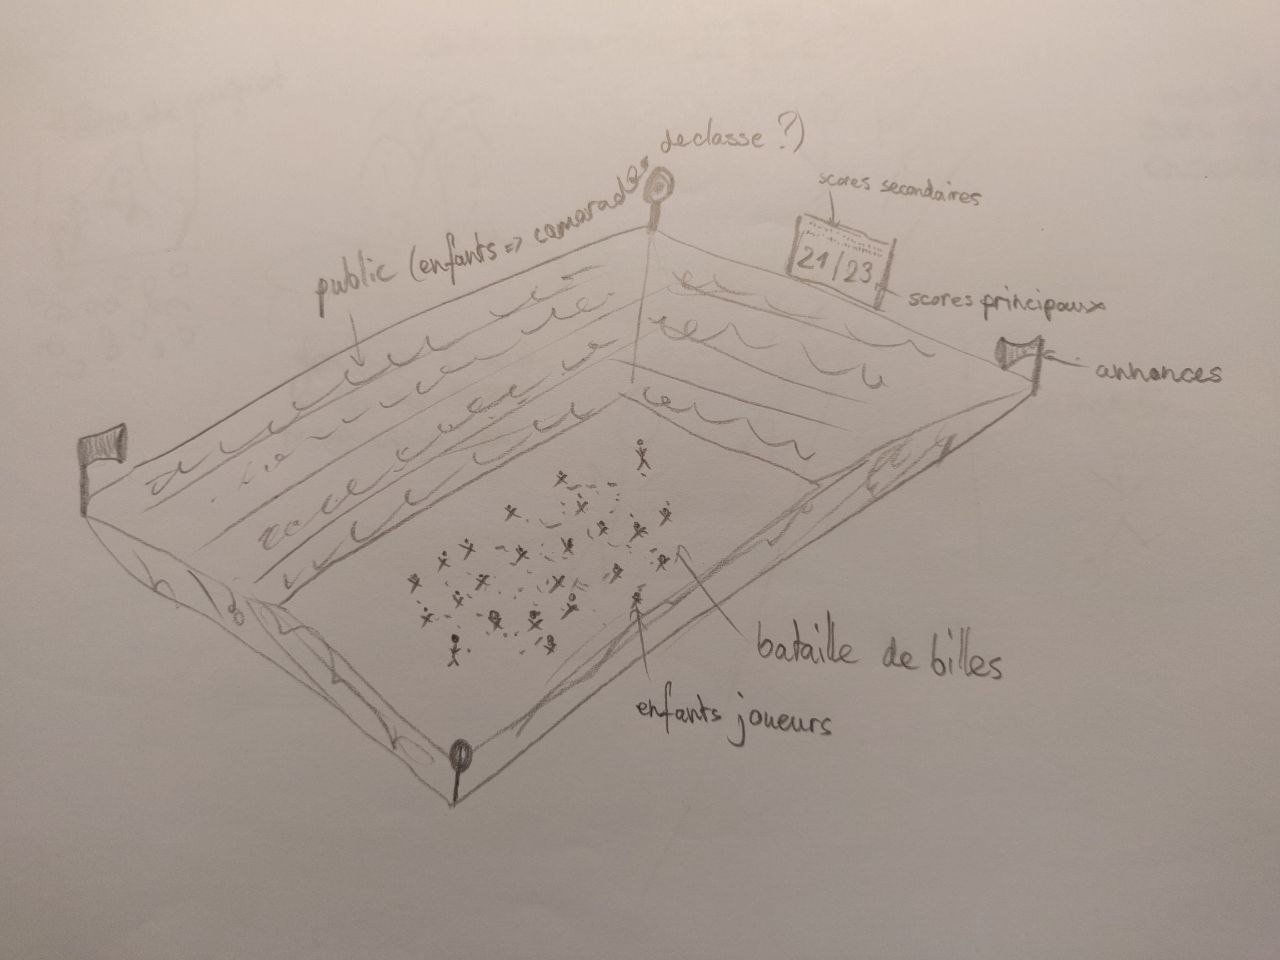 public (enfants => camarades de classe ?)
scores secondaires
21/23
scores principaux
annonces
bataille de billes
enfants joueurs